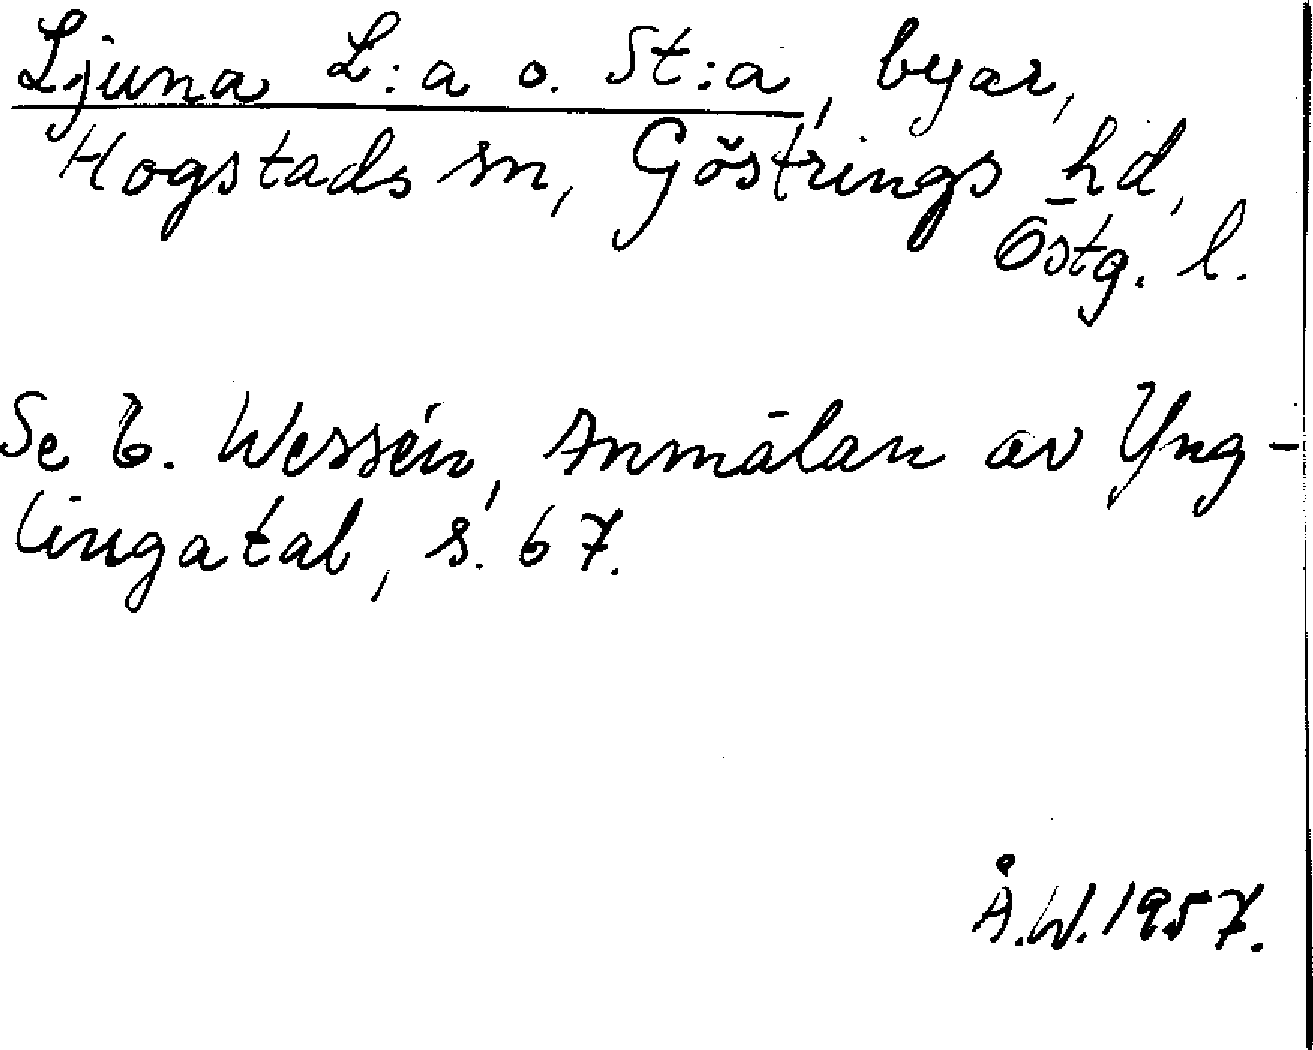 Ljuna L:a o. St:a, byar,
Hogstads sn, Göstrings hd,
Östg. l.
Se E. Wessén, Anmälan av Yng-
lingatal, s. 67.
Å.W. 1957.